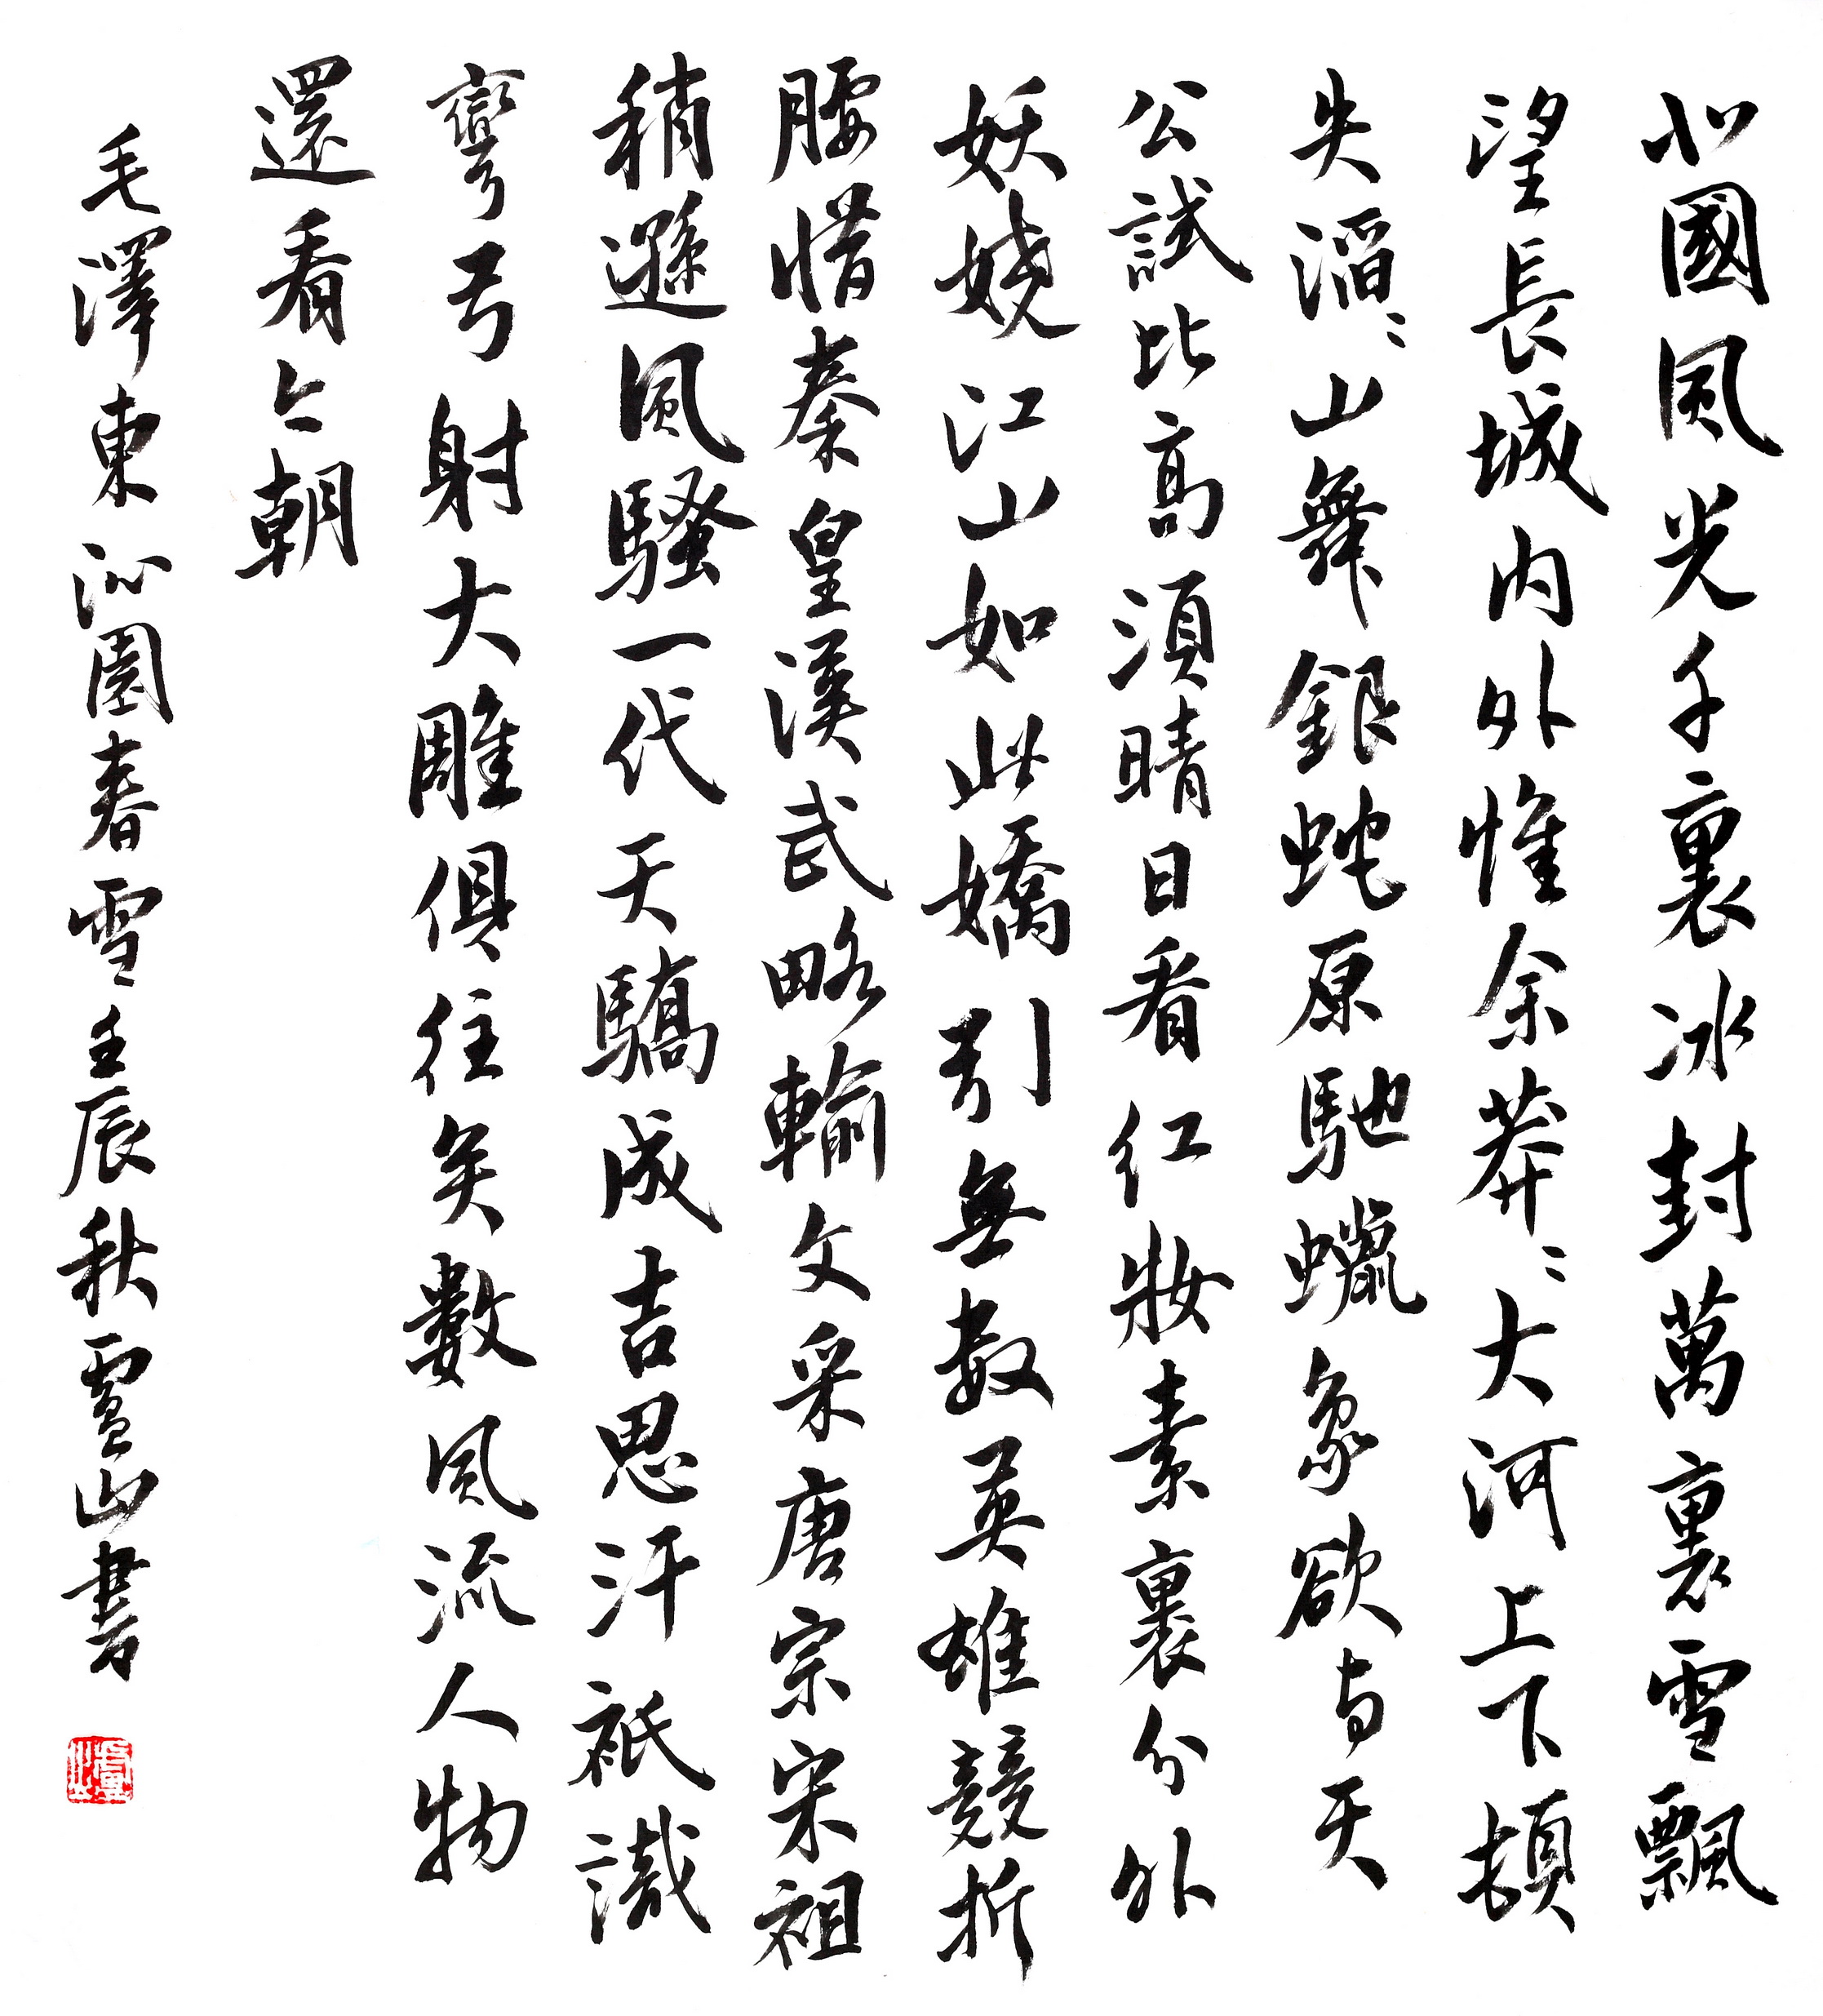 北國風光千裏冰封萬裏雪飄
望長城內外惟余莽〻大河上下頓
失滔〻山舞銀蛇原馳蠟象欲与天
公試比高須晴日看紅妝素裹分外
妖嬈江山如此嬌引無數英雄競折
腰惜秦皇漢武略輸文采唐宗宋祖
稍遜風騷一代天驕成吉思汗祇識
彎弓射大雕俱往矣數風流人物
還看今朝
毛澤東沁園春雪壬辰秋山書